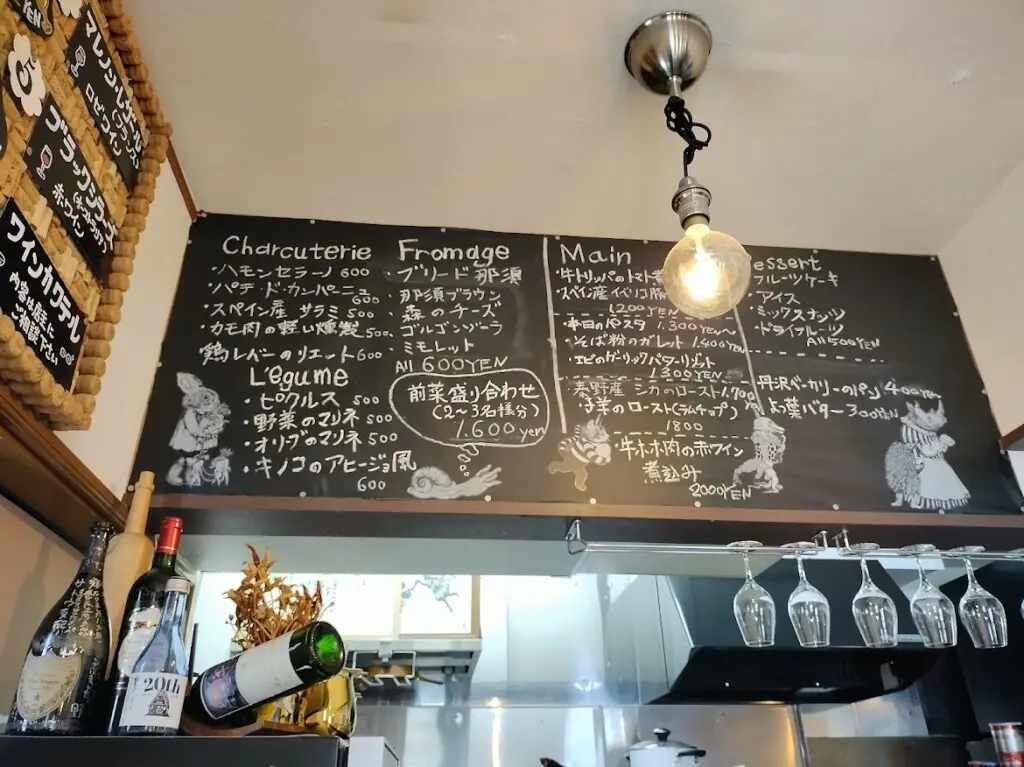 YEN
マレノン・ルオール
(フランス)
ロゼワイン
ブラックシラーズ
(オーストラリア)
赤ワイン
ワインカクテル
内容は店主に
ご相談下さい
Charcuterie
・ハモンセラーノ 600
・パテ・ド・カンパーニュ
600
・スペイン産 サラミ 500
・カモ肉の軽い燻製 500
鶏レバーのリエット 600
Légume
・ピクルス 500
・野菜のマリネ 500
・オリーブのマリネ 500
・キノコのアヒージョ風
600
Fromage
・ブリード那須
・那須ブラウン
・森のチーズ
ゴルゴンゾーラ
ミモレット
All 600YEN
前菜盛り合わせ
(2〜3名様分)
1.600 yen
Main
・牛トリッパのトマト煮
・スペイン産イベリコ豚
1200YEN
・本日のパスタ 1.300YEN〜
・そば粉のガレット 1.400YEN
・エビのガーリックバターソテー
1300YEN
秦野産 シカのロースト 1.700
仔羊のロースト(ラムチョップ)
1800
・牛ホホ肉の赤ワイン
煮込み
2000YEN
essert
フルーツケーキ
・アイス
・ミックスナッツ
・ドライフルーツ
All 500YEN
丹沢ベーカリーのパン 400YEN
よつ葉バター 300YEN
20th